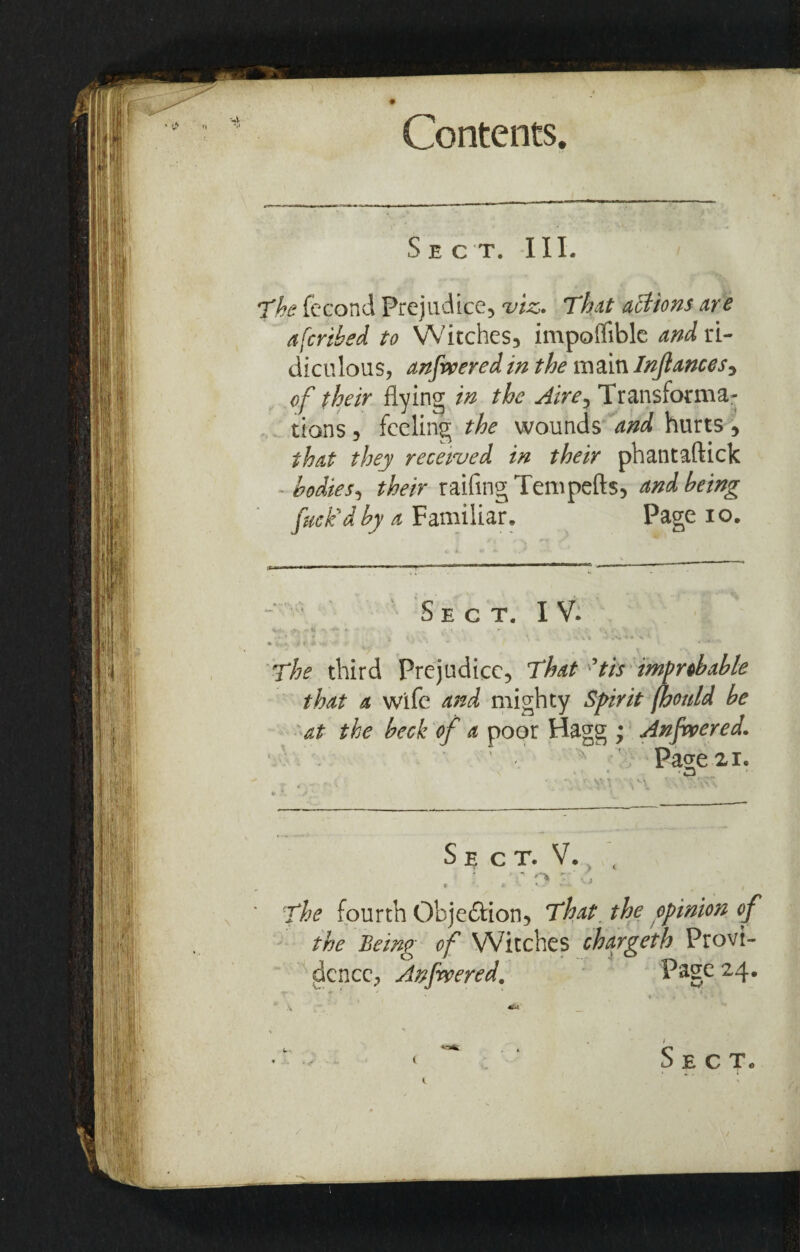 Contents.
SECT. III.
The ſecond Prejudice, viz. That actions are
aſcribed to Witches, impoſſible and ri-
diculous, anſwered in the main Inſtances,
of their flying in the Aire, Transforma-
tions, feeling the wounds and hurts,
that they received in their phantaſtick
bodies, their raiſing Tempeſts, and being
ſuck'd by a Familiar. Page 10.
SECT. IV.
The third Prejudice, That 'tis improbable
that a wiſe and mighty Spirit ſhould be
at the beck of a poor Hagg ; Anſwered.
Page 21.
SECT. V.
The fourth Objection, That the opinion of
the Being of Witches chargeth Provi-
dence, Anſwered. Page 24.
SECT.